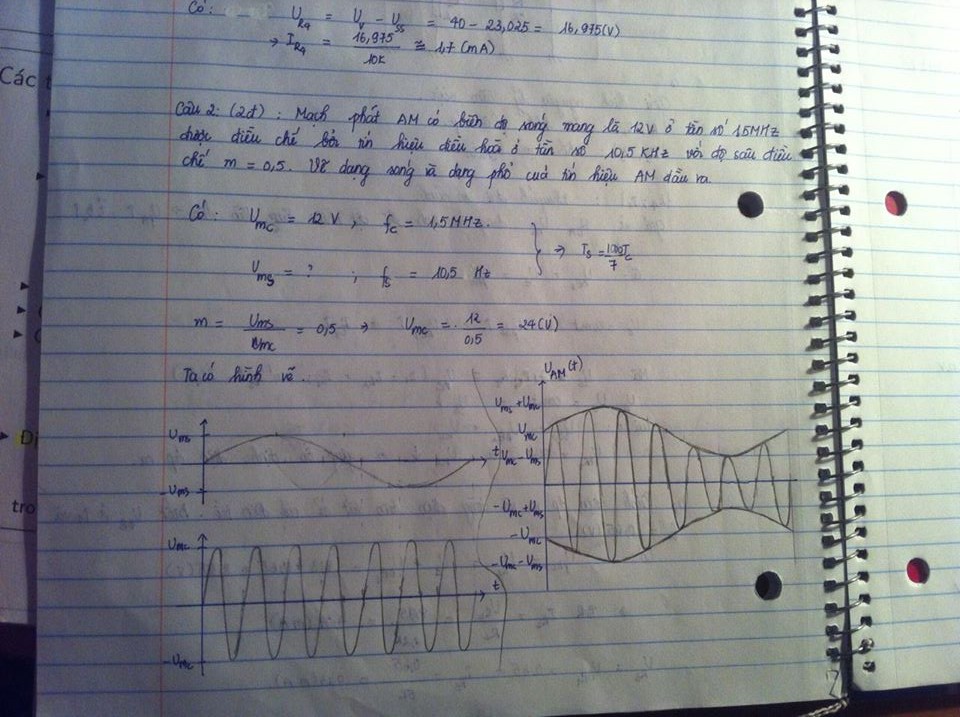 Có:
U_R4 = U_V − U_SS = 40 − 23,025 = 16,975(V)
→ I_R4 = 16,975/10K ≅ 1,7(mA)
Các t
Câu 2: (2đ): Mạch phát AM có biên độ sóng mang là 12V ở tần số 1.5MHz
được điều chế bởi tín hiệu điều hoà ở tần số 10,5 KHz với độ sâu điều
chế m = 0,5. Vẽ dạng sóng và dạng phổ của tín hiệu AM đầu ra.
Có: U_mc = 12 V; f_c = 1,5MHz.
⇒ T_S = 1000T_c/7
U_ms = ? ; f_s = 10,5 Hz
m = U_ms/U_mc = 0,5 ⇒ U_mc = 12/0,5 = 24(V)
Ta có hình vẽ.
U_AM(t)
U_ms + U_mc
U_mc
U_mc − U_ms
−U_mc + U_ms
−U_mc
−U_mc − U_ms
U_ms
t
−U_ms
U_mc
t
−U_mc
Đi
tro